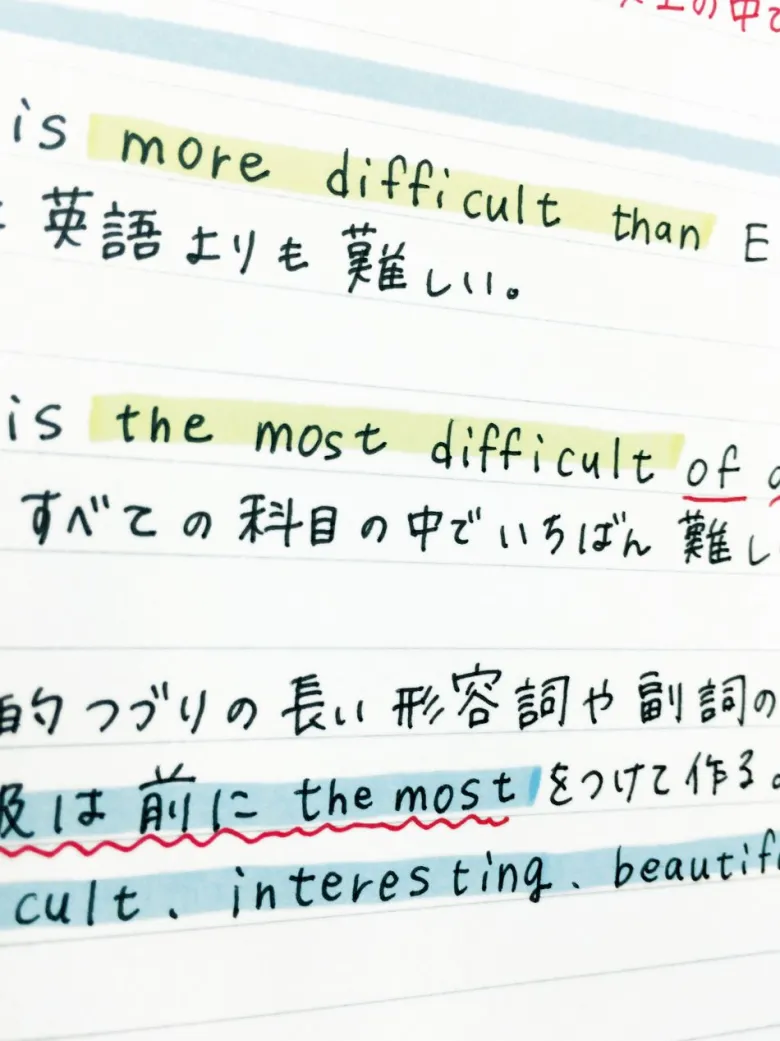 上の中で
is more difficult than E
英語よりも難しい。
is the most difficult of
すべての科目の中でいちばん難し
的つづりの長い形容詞や副詞の
級は前に the most をつけて作る。
cult、interesting、beautif